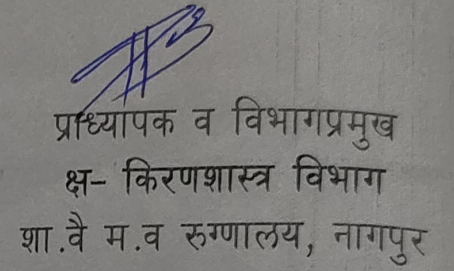 प्राध्यापक व विभागप्रमुख
क्ष- किरणशास्त्र विभाग
शा.वै म.व रुग्णालय, नागपुर